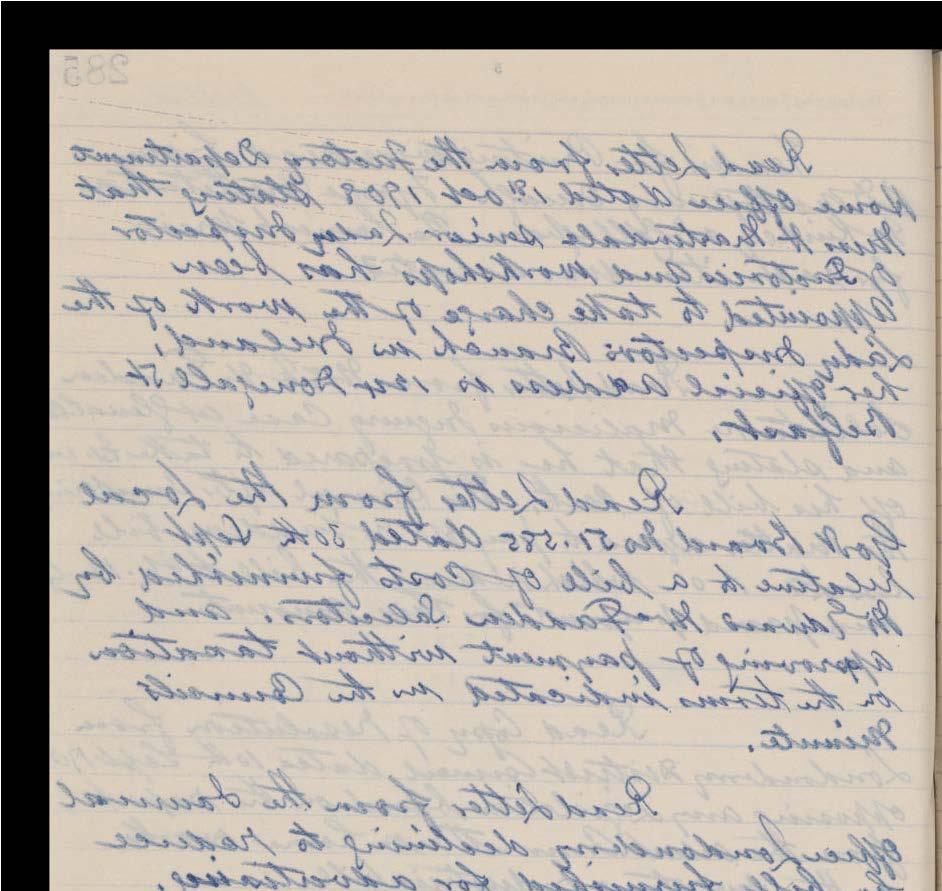 285
Read Letter from the Factory Department
Home Office dated 1st Oct 1908 stating that
Miss H Martindale Senior Lady Inspector
of Factories and Workshops has been
appointed to take charge of the work of the
Lady Inspectors Branch in Ireland,
her official address is Donegall St
Belfast.
Read Letter from the Local
Govt Board No 51.585 dated 30th Sept
relative to a bill of Costs furnished by
Mr Edward McFadden Solicitor. and
approving of payment without taxation
on the terms indicated in the Councils
Minute.
Read Letter from the Journal
Office Londonderry declining to reduce
furnished for advertising.